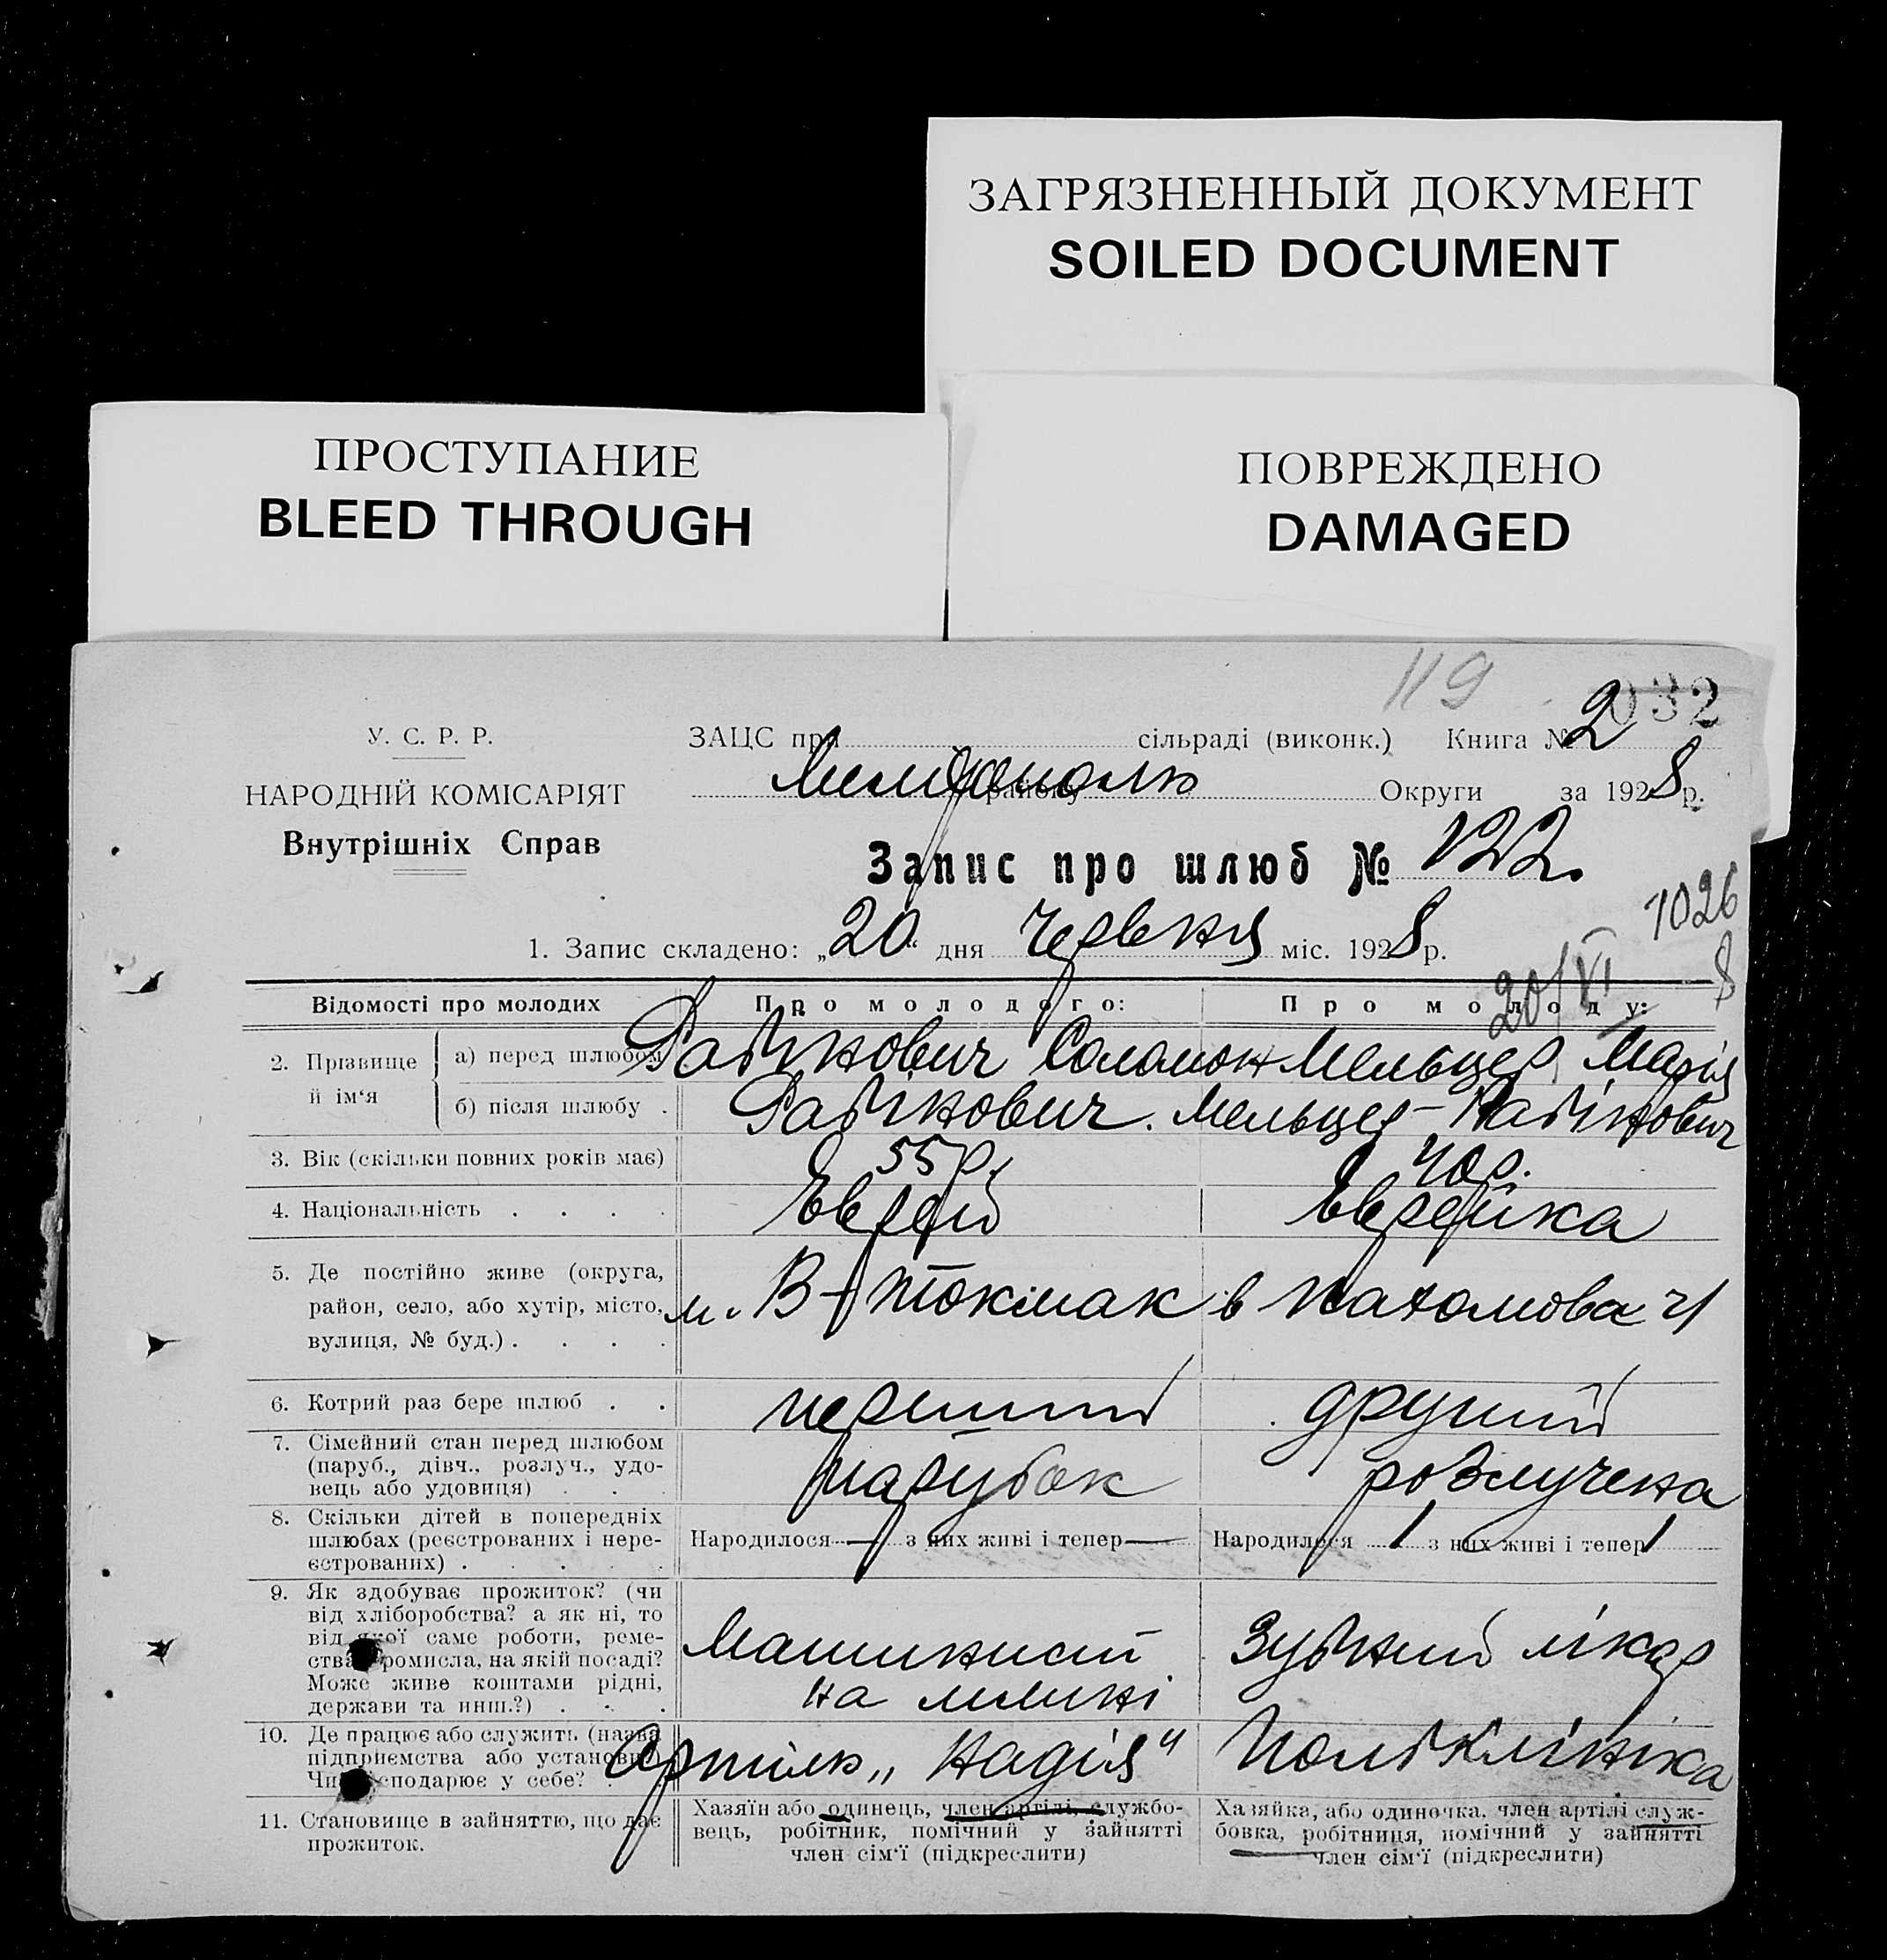 ЗАГРЯЗНЕННЫЙ ДОКУМЕНТ
SOILED DOCUMENT
ПРОСТУПАНИЕ
BLEED THROUGH
ПОВРЕЖДЕНО
DAMAGED
119
032
У. С. Р. Р.
НАРОДНІЙ КОМІСАРІЯТ
Внутрішніх Справ
ЗАЦС при сільраді (виконк.) Книга № 2
району Округи за 1928 р.
Запис про шлюб № 122.
1026
1. Запис складено: „20“ дня Червня міс. 1928 р.
20/VI 8
Відомості про молодих Про молодого: Про молоду:
2. Прізвище й ім‘я
а) перед шлюбом Рабінович Соломон Мельцер Марія
б) після шлюбу . Рабінович. Мельцер-Рабінович
3. Вік (скільки повних років має) 55 р. 40 р.
4. Національність . . . . Еврей Еврейка
5. Де постійно живе (округа,
район, село, або хутір, місто,
вулиця, № буд.) . . . .
м. В-Токмак
6. Котрий раз бере шлюб . . перший другий
7. Сімейний стан перед шлюбом
(паруб., дівч., розлуч., удо-
вець або удовиця) . . .
парубок розлучена
8. Скільки дітей в попередніх
шлюбах (реєстрованих і нере-
єстрованих) . . . . .
Народилося — з них живі і тепер — Народилося 1 з них живі і тепер 1
9. Як здобуває прожиток? (чи
від хліборобства? а як ні, то
від якої саме роботи, реме-
ства, промисла, на якій посаді?
Може живе коштами рідні,
держави та инш.?) . . .
Машинист
на млині
Зубний лікар
10. Де працює або служить (назва
підприємства або установи?)
Чи господарює у себе? .
Артіль „Надія“ Поліклініка
11. Становище в зайняттю, що дає
прожиток.
Хазяїн або одинець, член артілі, службо-
вець, робітник, помічний у зайнятті
член сім‘ї (підкреслити)
Хазяйка, або одиночка, член артілі служ-
бовка, робітниця, помічний у зайнятті
член сім‘ї (підкреслити)